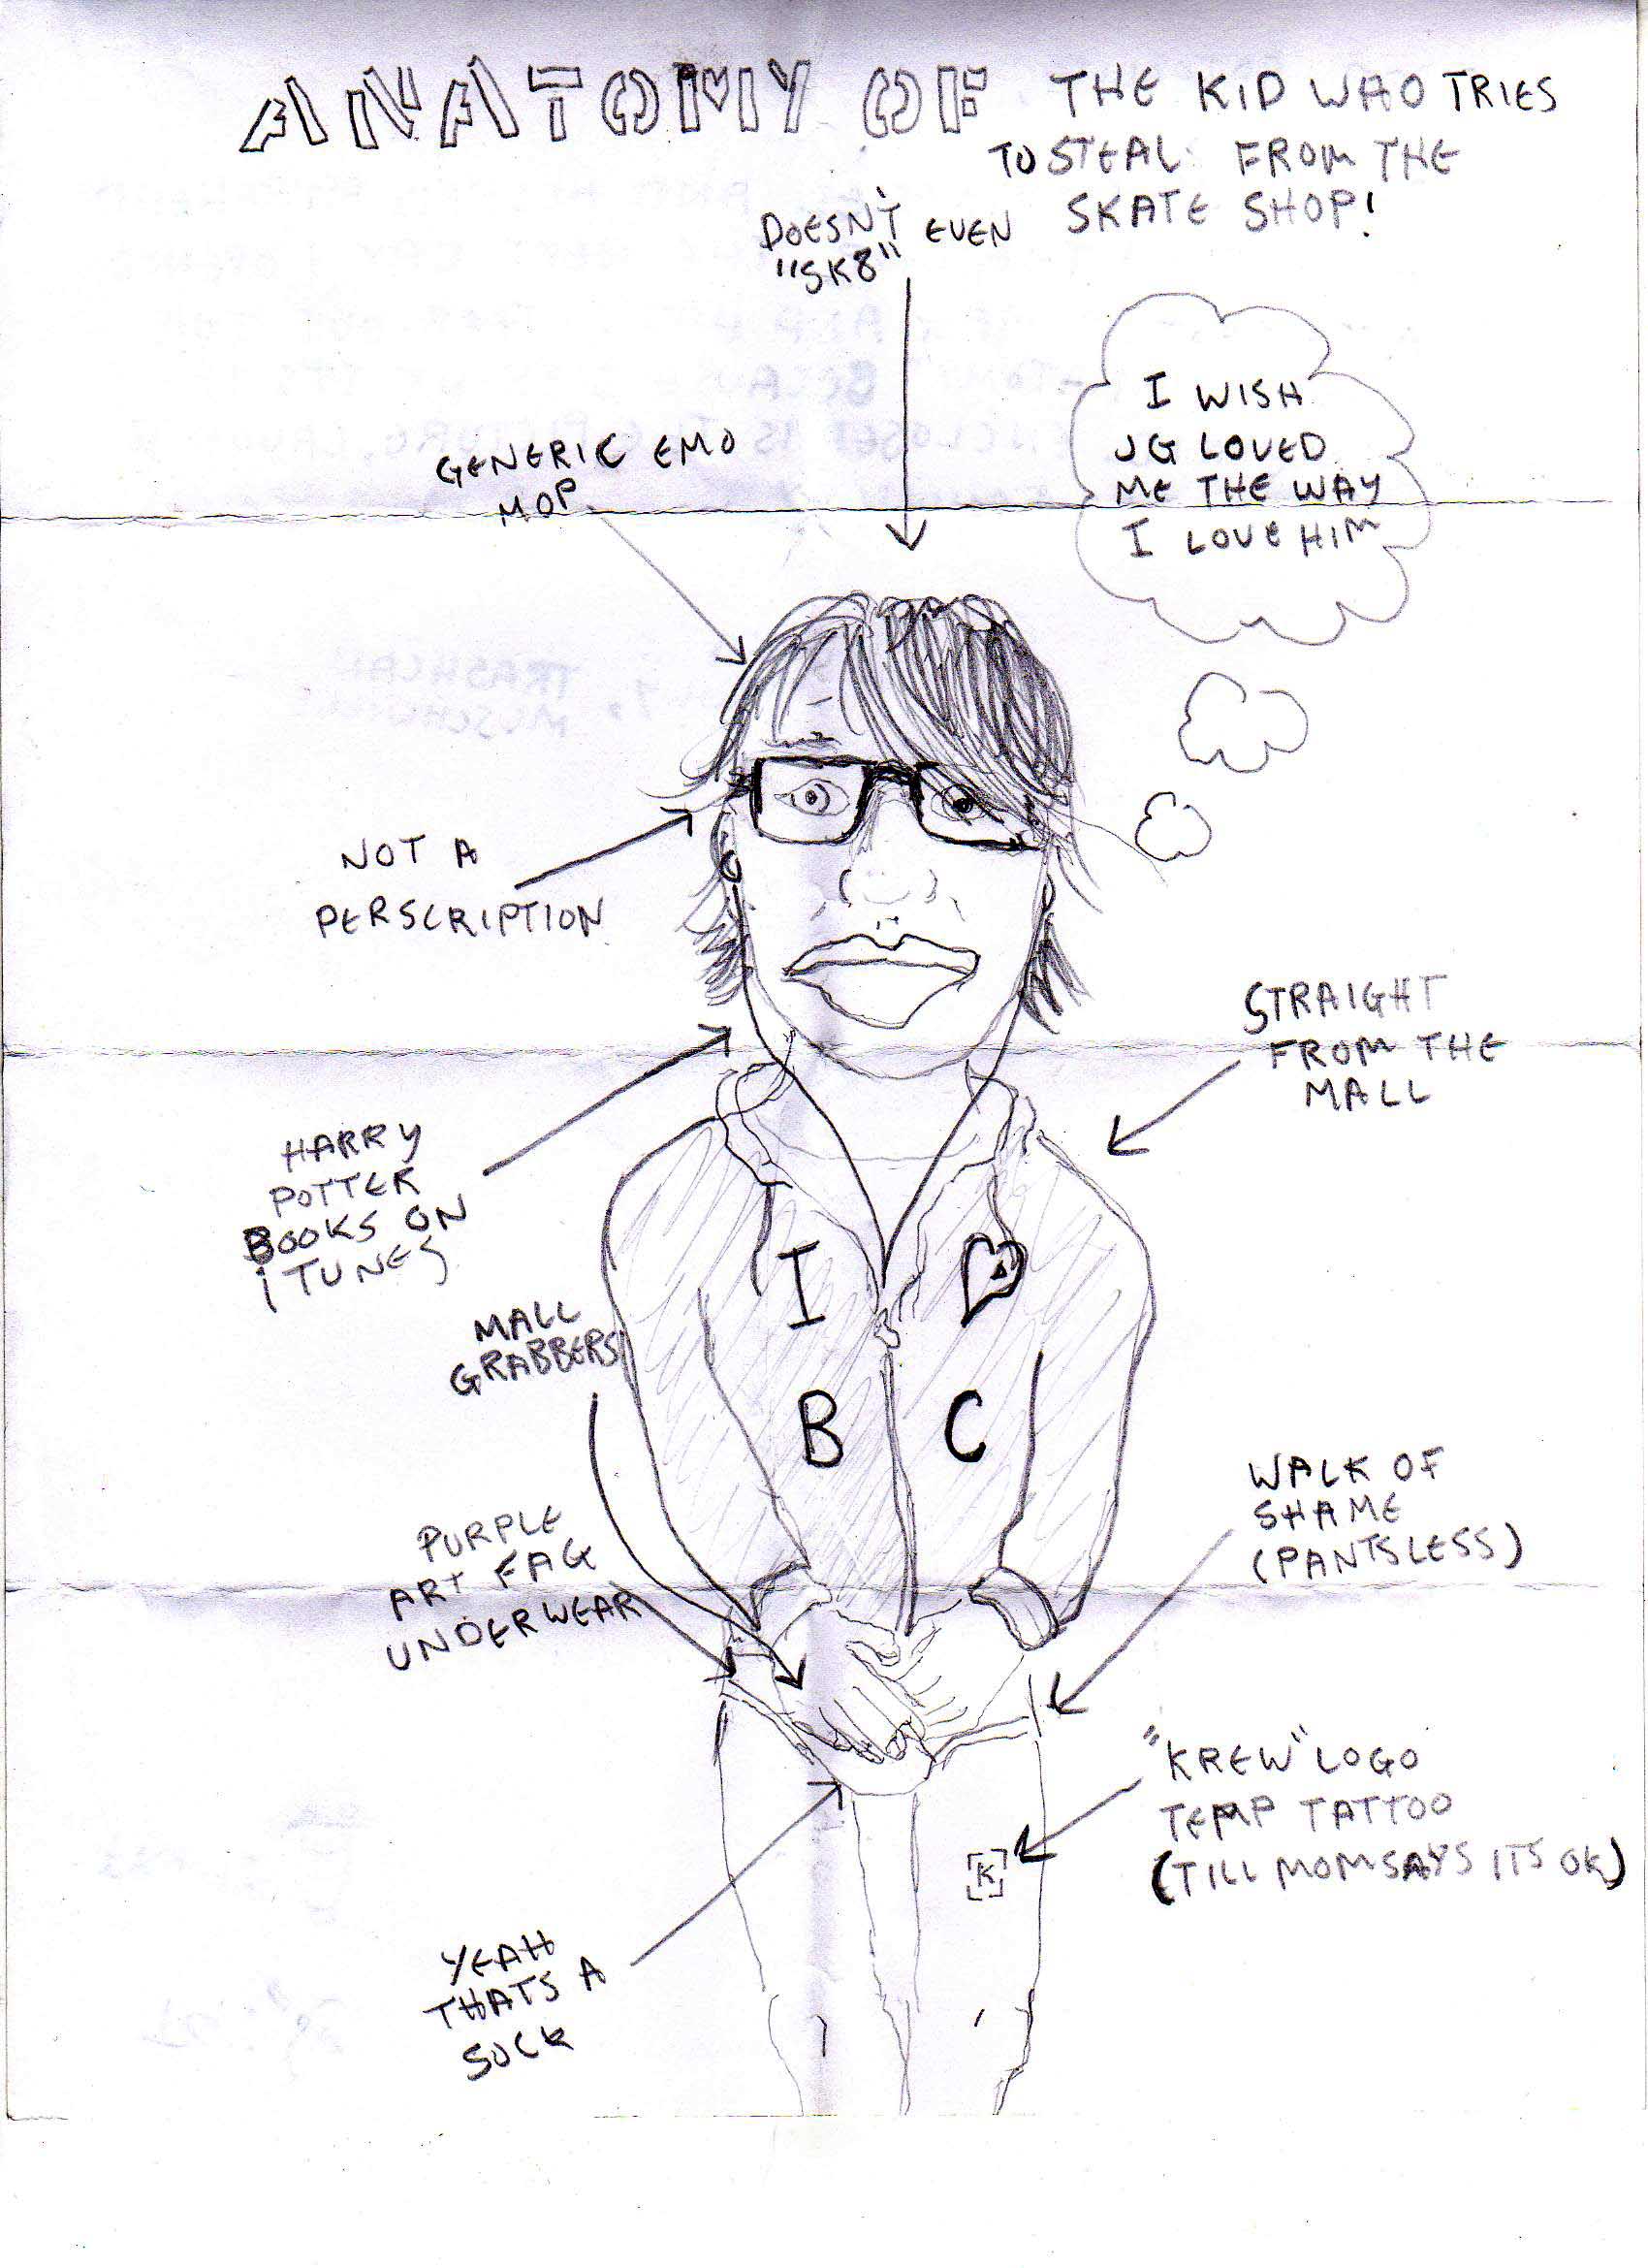 ANATOMY OF THE KID WHO TRIES
TO STEAL FROM THE
SKATE SHOP!
DOESN'T EVEN
"SK8"
I WISH
JG LOVED
ME THE WAY
I LOVE HIM
GENERIC EMO
MOP
NOT A
PERSCRIPTION
STRAIGHT
FROM THE
MALL
HARRY
POTTER
BOOKS ON
iTUNES
I
B C
MALL
GRABBERS
WALK OF
SHAME
(PANTSLESS)
PURPLE
ART FAG
UNDERWEAR
"KREW" LOGO
TEMP TATTOO
(TILL MOM SAYS ITS OK)
K
YEAH
THATS A
SOCK